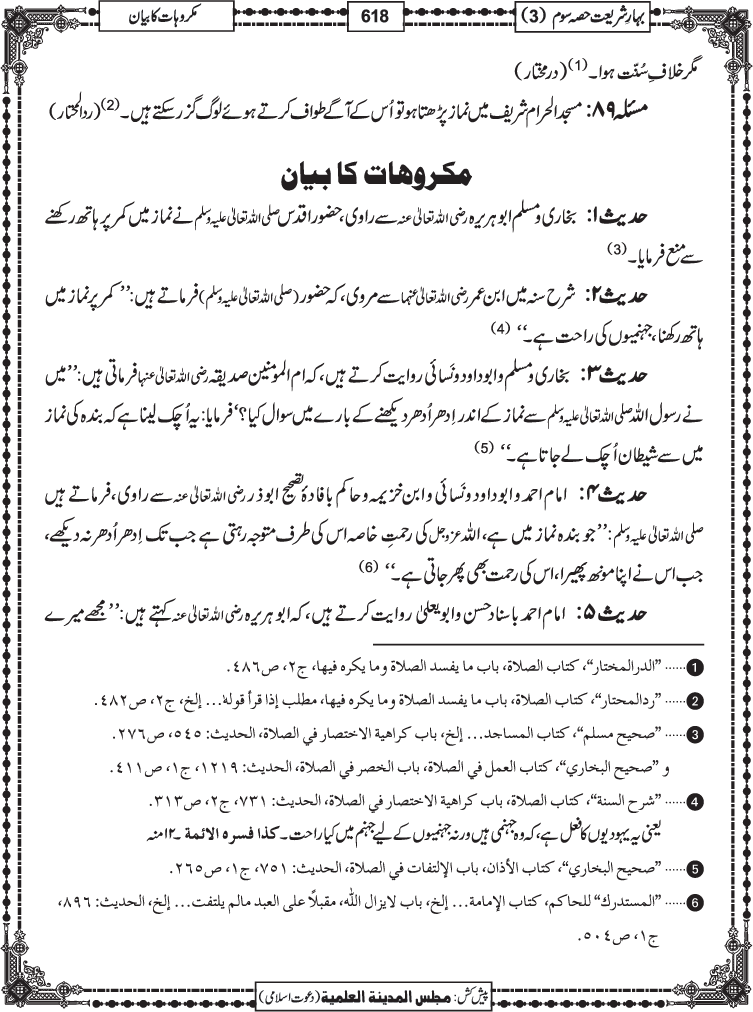 بہارِ شریعت حصہ سوم (3)
618
مکروہات کا بیان
مگر خلافِ سُنّت ہوا۔ (1) (درمختار)
مسئلہ ۸۹: مسجد الحرام شریف میں نماز پڑھتا ہو تو اُس کے آگے طواف کرتے ہوئے لوگ گزر سکتے ہیں۔ (2) (ردالمحتار)
مکروهات کا بیان
حدیث ۱: بخاری و مسلم ابوہریرہ رضی اللہ تعالیٰ عنہ سے راوی، حضور اقدس صلی اللہ تعالیٰ علیہ وسلم نے نماز میں کمر پر ہاتھ رکھنے
سے منع فرمایا۔ (3)
حدیث ۲: شرح سنہ میں ابن عمر رضی اللہ تعالیٰ عنہما سے مروی، کہ حضور (صلی اللہ تعالیٰ علیہ وسلم) فرماتے ہیں: ’’کمر پر نماز میں
ہاتھ رکھنا، جہنمیوں کی راحت ہے۔‘‘ (4)
حدیث ۳: بخاری و مسلم و ابو داود و نَسائی روایت کرتے ہیں، کہ ام المومنین صدیقہ رضی اللہ تعالیٰ عنہا فرماتی ہیں: ’’میں
نے رسول اللہ صلی اللہ تعالیٰ علیہ وسلم سے نماز کے اندر اِدھر اُدھر دیکھنے کے بارے میں سوال کیا؟‘ فرمایا: یہ اُچک لینا ہے کہ بندہ کی نماز
میں سے شیطان اُچک لے جاتا ہے۔‘‘ (5)
حدیث ۴: امام احمد و ابو داود و نَسائی و ابن خزیمہ و حاکم بافادۂ تصحیح ابوذر رضی اللہ تعالیٰ عنہ سے راوی، فرماتے ہیں
صلی اللہ تعالیٰ علیہ وسلم: ’’جو بندہ نماز میں ہے، اللہ عزوجل کی رحمتِ خاصہ اس کی طرف متوجہ رہتی ہے جب تک اِدھر اُدھر نہ دیکھے،
جب اس نے اپنا مونھ پھیرا، اس کی رحمت بھی پھر جاتی ہے۔‘‘ (6)
حدیث ۵: امام احمد باسناد حسن و ابو یعلیٰ روایت کرتے ہیں، کہ ابوہریرہ رضی اللہ تعالیٰ عنہ کہتے ہیں: ’’مجھے میرے
1 ...... ”الدرالمختار“، كتاب الصلاة، باب ما يفسد الصلاة وما يكره فيها، ج۲، ص۴۸۶.
2 ...... ”ردالمحتار“، كتاب الصلاة، باب ما يفسد الصلاة وما يكره فيها، مطلب إذا قرأ قوله... إلخ، ج۲، ص۴۸۲.
3 ...... ”صحيح مسلم“، كتاب المساجد... إلخ، باب كراهية الاختصار في الصلاة، الحديث: ۵۴۵، ص۲۷۶.
و ”صحيح البخاري“، كتاب العمل في الصلاة، باب الخصر في الصلاة، الحديث: ۱۲۱۹، ج۱، ص۴۱۱.
4 ...... ”شرح السنة“، كتاب الصلاة، باب كراهية الاختصار في الصلاة، الحديث: ۷۳۱، ج۲، ص۳۱۳.
یعنی یہ یہودیوں کا فعل ہے، کہ وہ جہنمی ہیں ورنہ جہنمیوں کے لیے جہنم میں کیا راحت۔ كذا فسره الائمة ۔ ۱۲ منہ
5 ...... ”صحيح البخاري“، كتاب الأذان، باب الإلتفات في الصلاة، الحديث: ۷۵۱، ج۱، ص۲۶۵.
6 ...... ”المستدرك“ للحاكم، كتاب الإمامة... إلخ، باب لايزال الله، مقبلًا على العبد مالم يلتفت... إلخ، الحديث: ۸۹۶،
ج۱، ص۵۰۴.
پیش کش: مجلس المدينة العلمية (دعوت اسلامی)